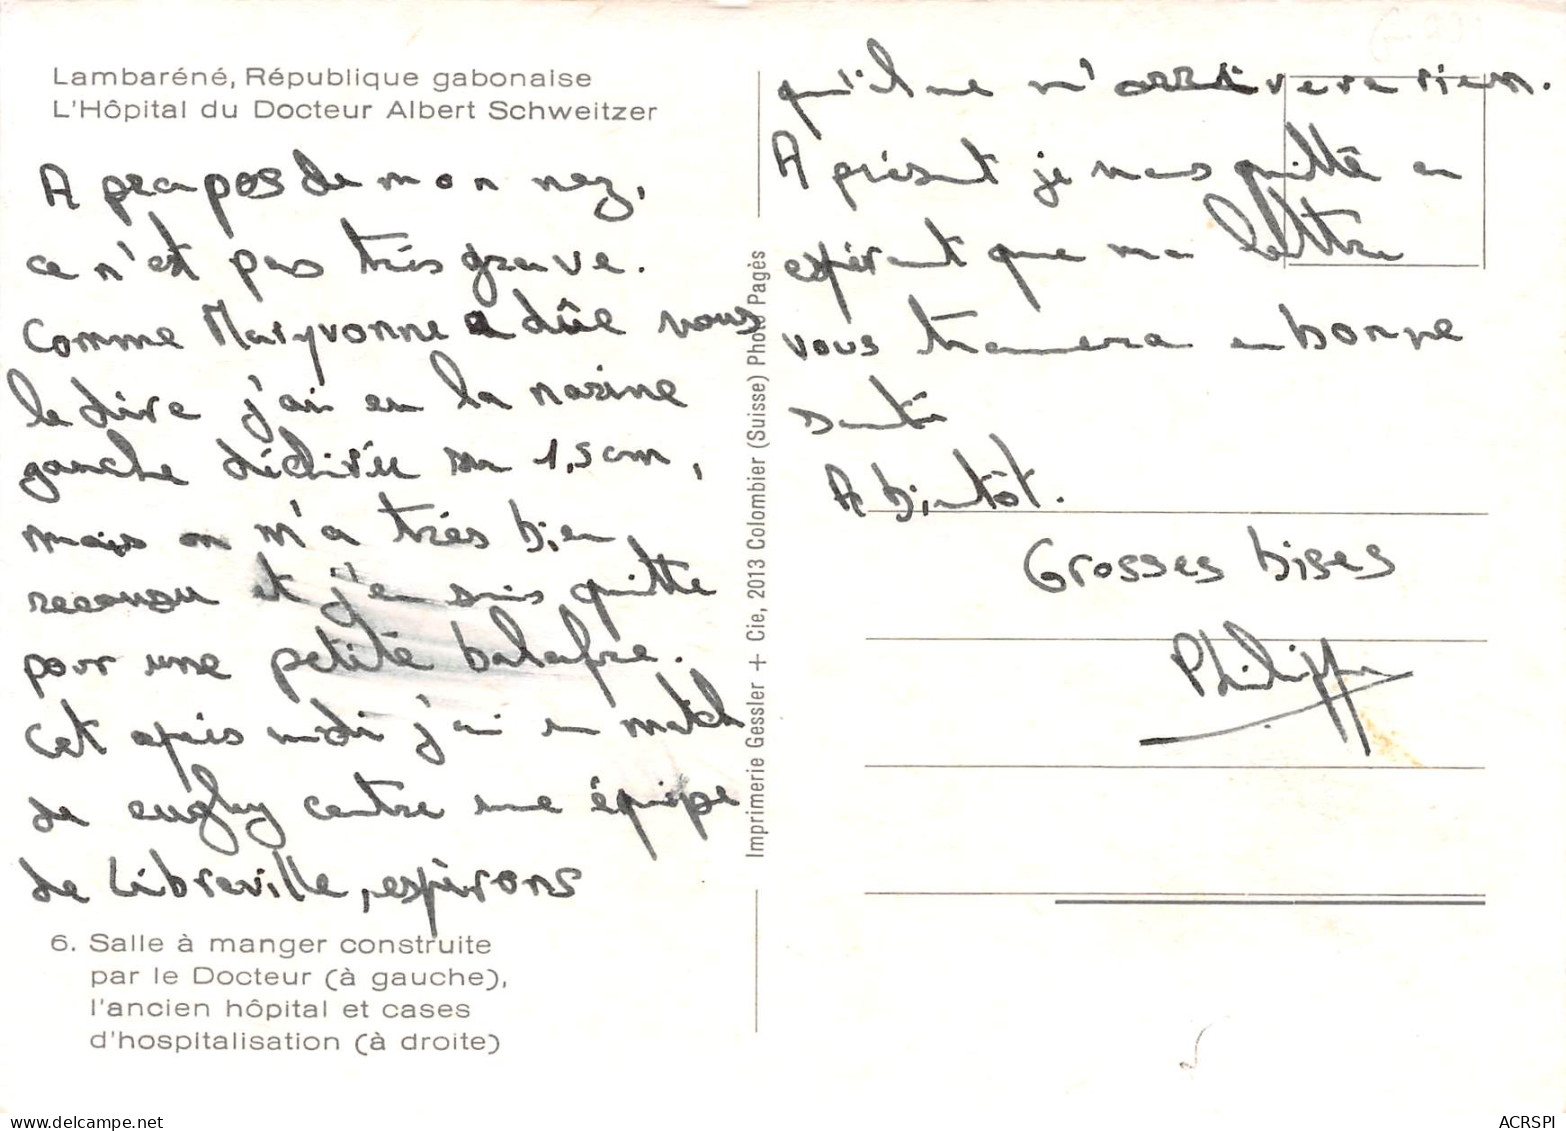 Lambaréné, République gabonaise
L'Hôpital du Docteur Albert Schweitzer
A propos de mon nez,
ce n'est pas très grave.
Comme Maryvonne a dûe vous
le dire j'ai eu la narine
gauche déchirée sur 1,5cm,
mais on m'a très bien
recousu et j'en suis quitte
pour une petite balafre.
Cet après midi j'ai un match
de rugby contre une équipe
de Libreville, espérons
6. Salle à manger construite
par le Docteur (à gauche),
l'ancien hôpital et cases
d'hospitalisation (à droite)
Imprimerie Gessler + Cie, 2013 Colombier (Suisse) Photo Pagès
qu'il ne m'arrivera rien.
A présent je vous quitte en
espérant que ma lettre
vous trouvera en bonne
santé
A bientôt.
Grosses bises
Philippe
delcampe.net
ACRSPI